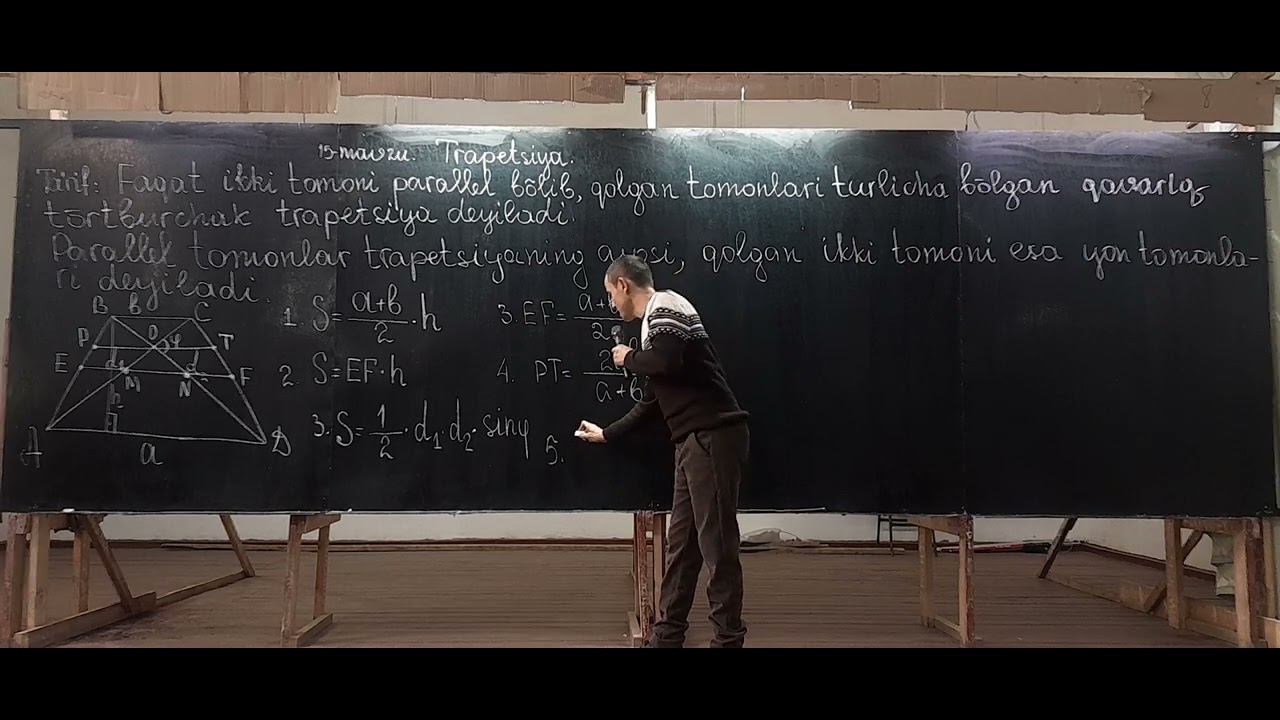 15-mavzu. Trapetsiya.
Ta'rif: Faqat ikki tomoni parallel bo'lib, qolgan tomonlari turlicha bo'lgan qavariq
to'rtburchak trapetsiya deyiladi.
Parallel tomonlar trapetsiyaning asosi, qolgan ikki tomoni esa yon tomonla-
ri deyiladi.
B b C
P O φ T
E d₁ d₂ F
M N
h
A a D
1. S = (a+b)/2 · h
2. S = EF · h
3. S = 1/2 · d₁ · d₂ · sinφ
3. EF = a+b/2
4. PT = 2ab/a+b
5.